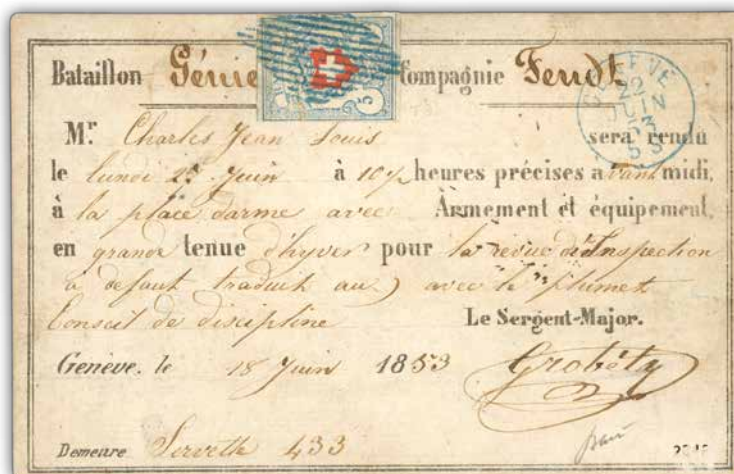 Bataillon Génie Compagnie Fendt
5
GENÈVE
22
JUIN
53
Mr. Charles Jean Louis sera rendu
le lundi 2 Juin à 10½ heures précises avant midi,
à la place darme avec Armement et équipement,
en grande tenue d'hyver pour la revue d'Inspection
à defaut traduit au) avec le plumet
Conseil de discipline Le Sergent-Major.
Genève, le 18 Juin 1853 Grobéty
Demeure Servette 433